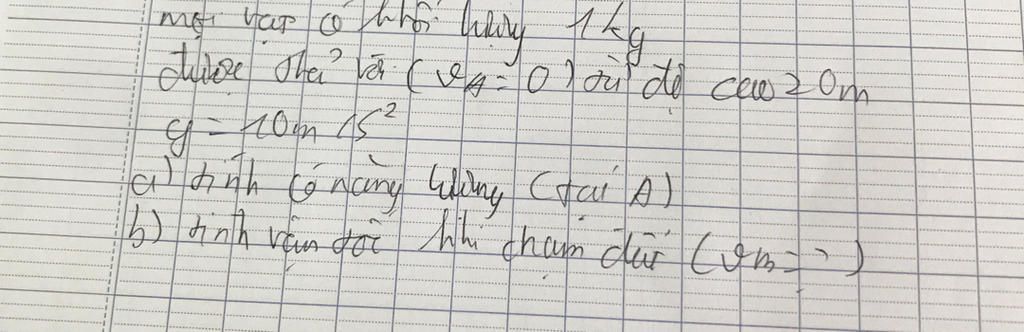 một vật có khối lượng 1kg
được thả rơi (vA = 0) từ độ cao 20m
g = 10m/s²
a) tính cơ năng lượng (tại A)
b) tính vận tốc khi chạm đất (vm = ?)